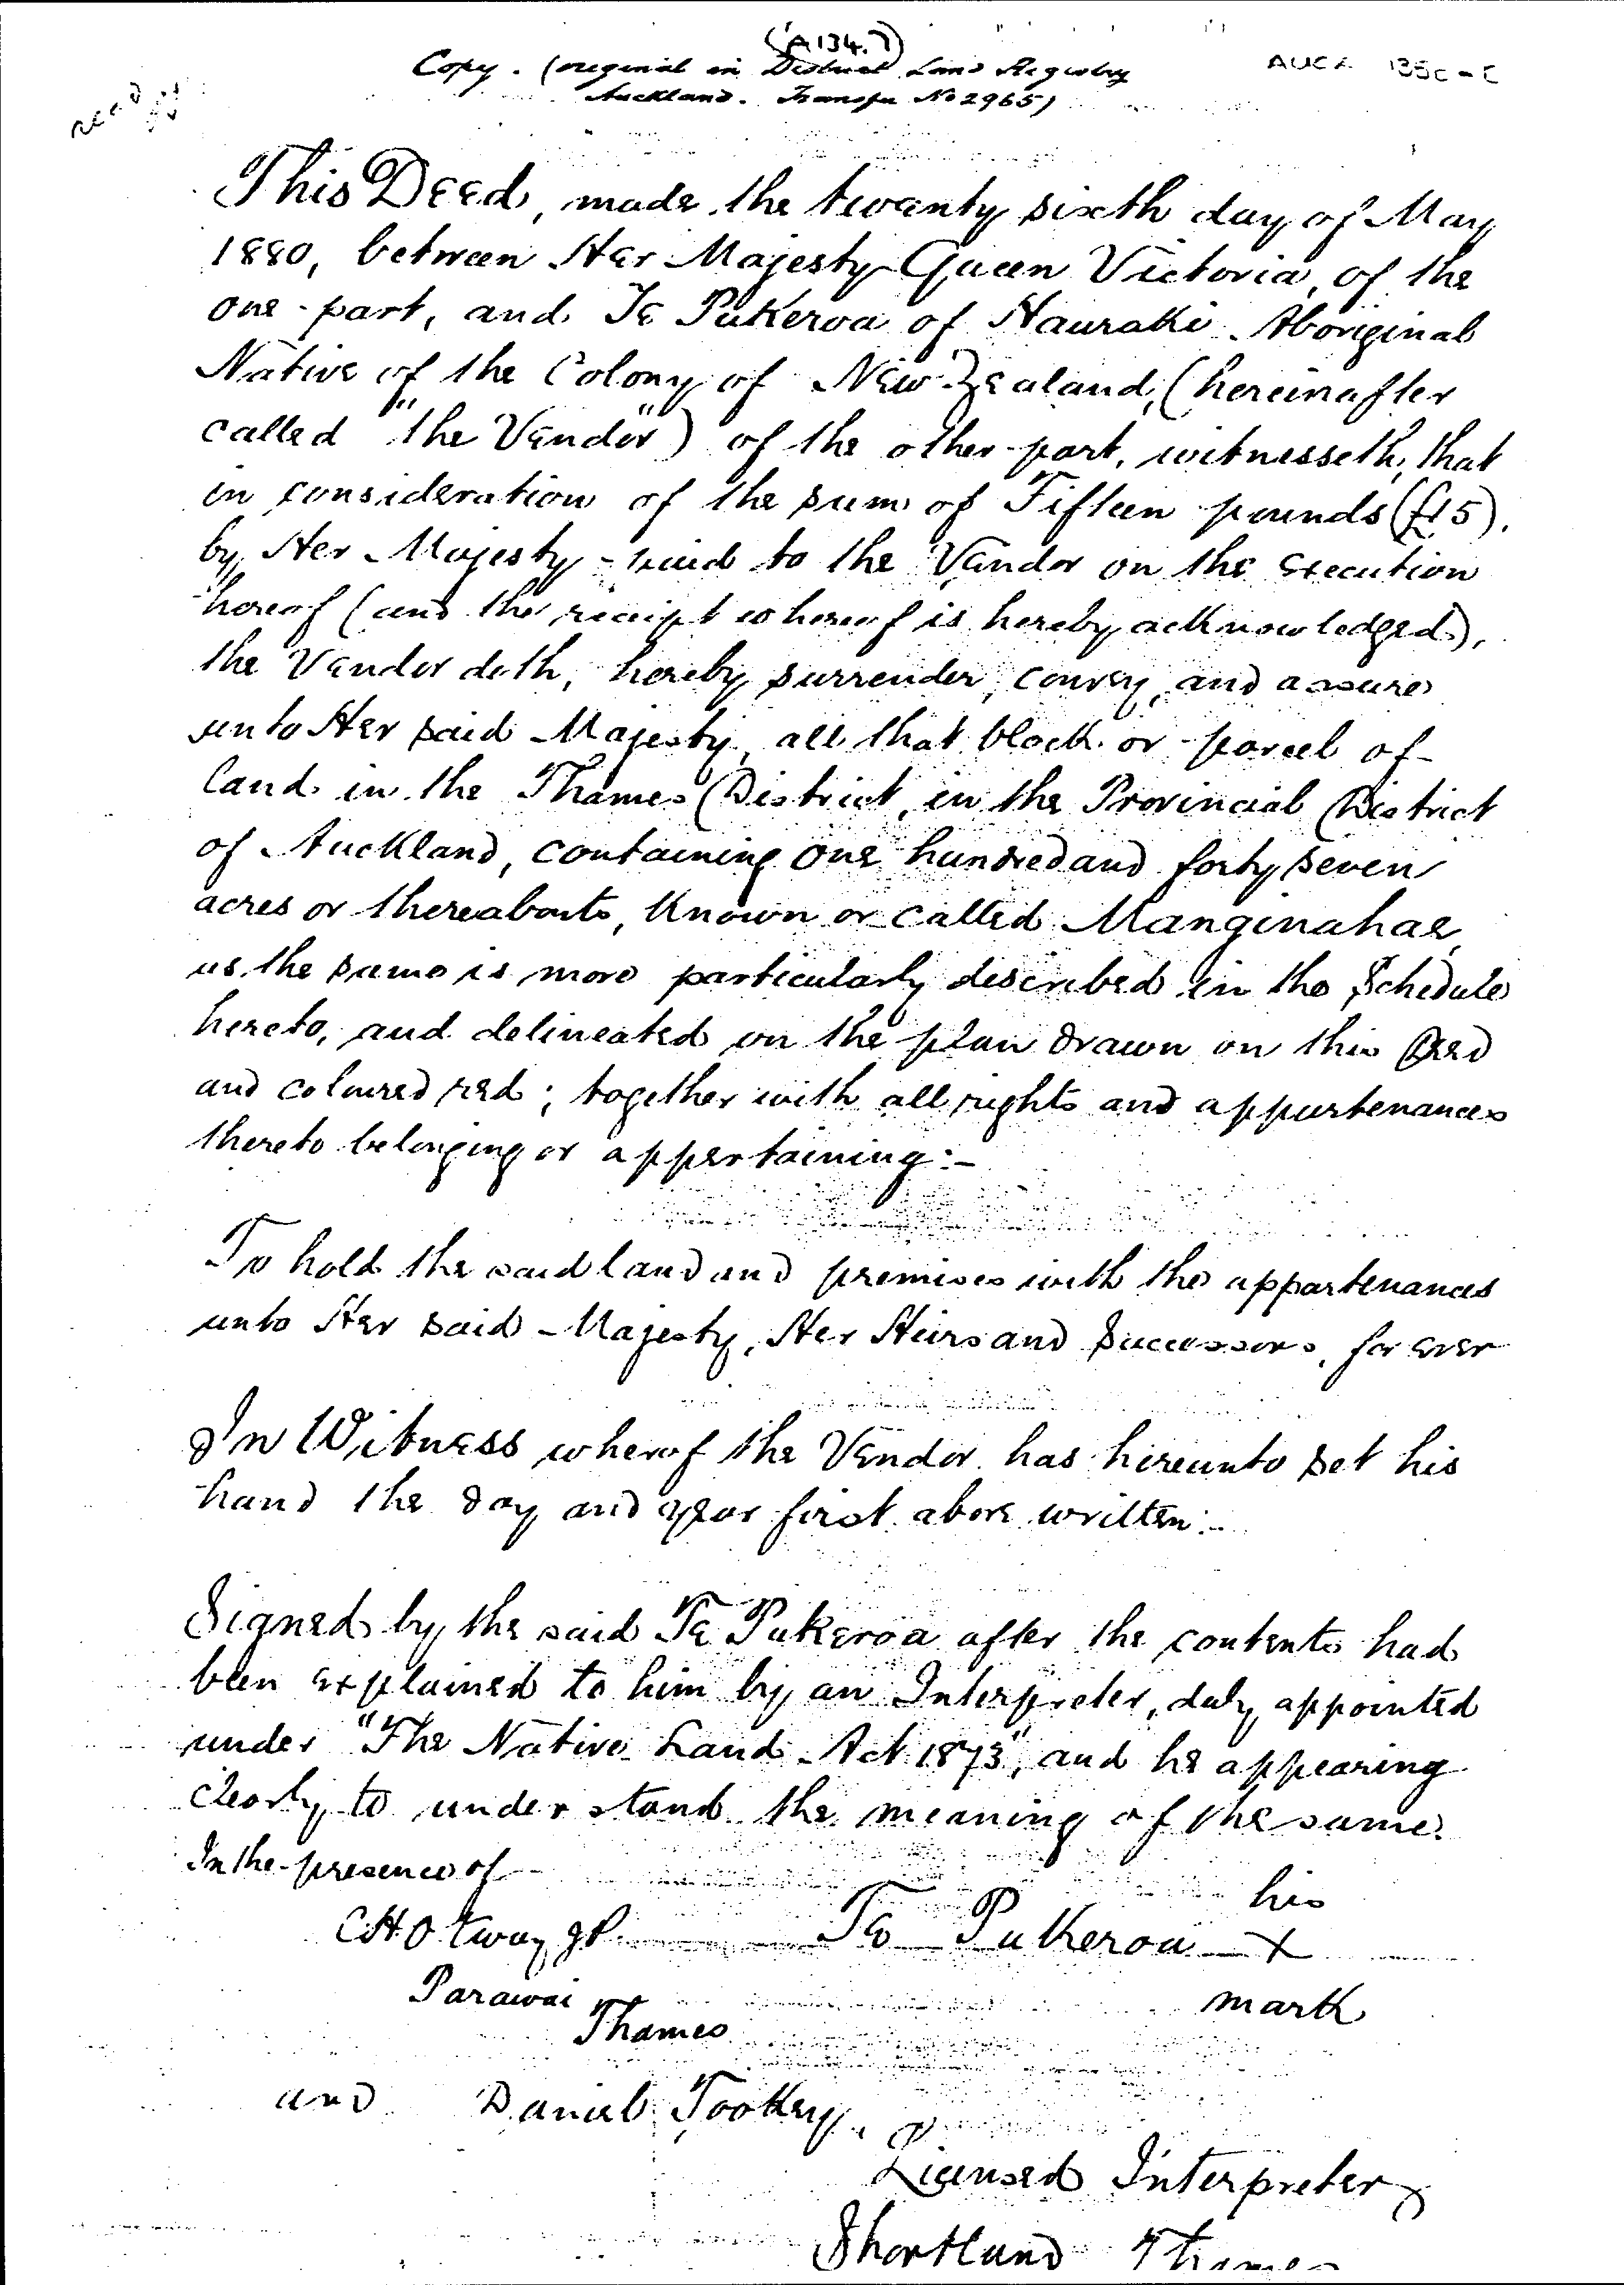 (A134.7)
Copy. (original in District Land Registry
Auckland. Transfer No 2965)
read
This Deed, made the twenty sixth day of May
1880, between Her Majesty Queen Victoria, of the
one part, and Te Pukeroa of Hauraki Aboriginal
Native of the Colony of New Zealand, (hereinafter
called "the Vendor") of the other part, witnesseth, that
in consideration of the sum of Fifteen pounds (£15).
by Her Majesty paid to the Vendor on the execution
hereof (and the receipt whereof is hereby acknowledged),
the Vendor doth, hereby surrender, convey, and assure
unto Her said Majesty, all that block or parcel of
land in the Thames District, in the Provincial District
of Auckland, containing one hundred and forty seven
acres or thereabouts, known or called Manginahae,
as the same is more particularly described in the Schedule
hereto, and delineated on the plan drawn on this Deed
and coloured red; together with all rights and appurtenances
thereto belonging or appertaining:-
To hold the said land and premises with the appurtenances
unto Her said Majesty, Her Heirs and Successors, for ever
In Witness whereof the Vendor has hereunto set his
hand the day and year first above written:-
Signed by the said Te Pukeroa after the contents had
been explained to him by an Interpreter, duly appointed
under "The Native Land Act 1873", and he appearing
clearly to understand the meaning of the same.
In the presence of
his
C H Otway JP. Te Pukeroa X
Parawai mark
Thames
and Daniel Tookey.
Licensed Interpreter
Shortland Thames